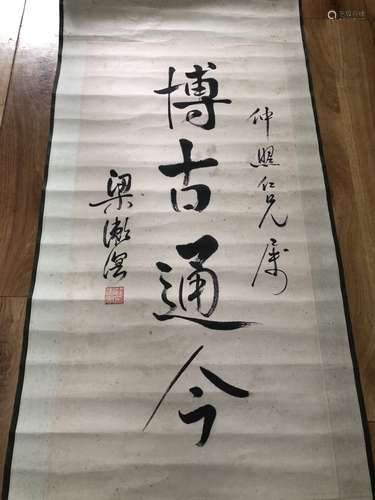 仲照仁兄属
博古通今
梁漱溟